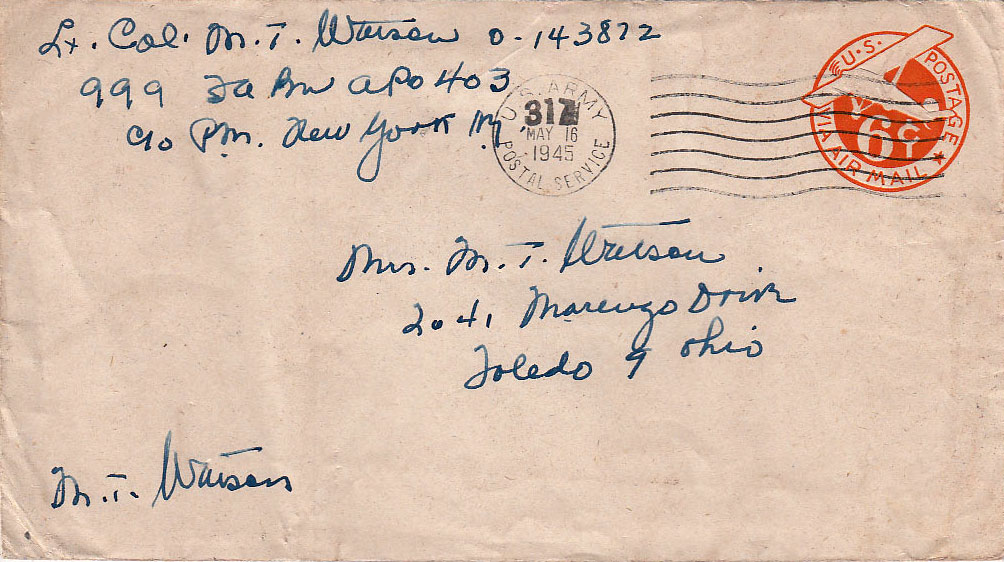 Lt. Col. M. T. Watson O-143872
999 Fa Bn APO 403
c/o P.M. New York N.Y.
U.S. ARMY
MAY 16
1945
POSTAL SERVICE
U.S. POSTAGE
6¢
VIA AIR MAIL
Mrs. M. T. Watson
2041 Marengo Drive
Toledo 9 Ohio
M. T. Watson